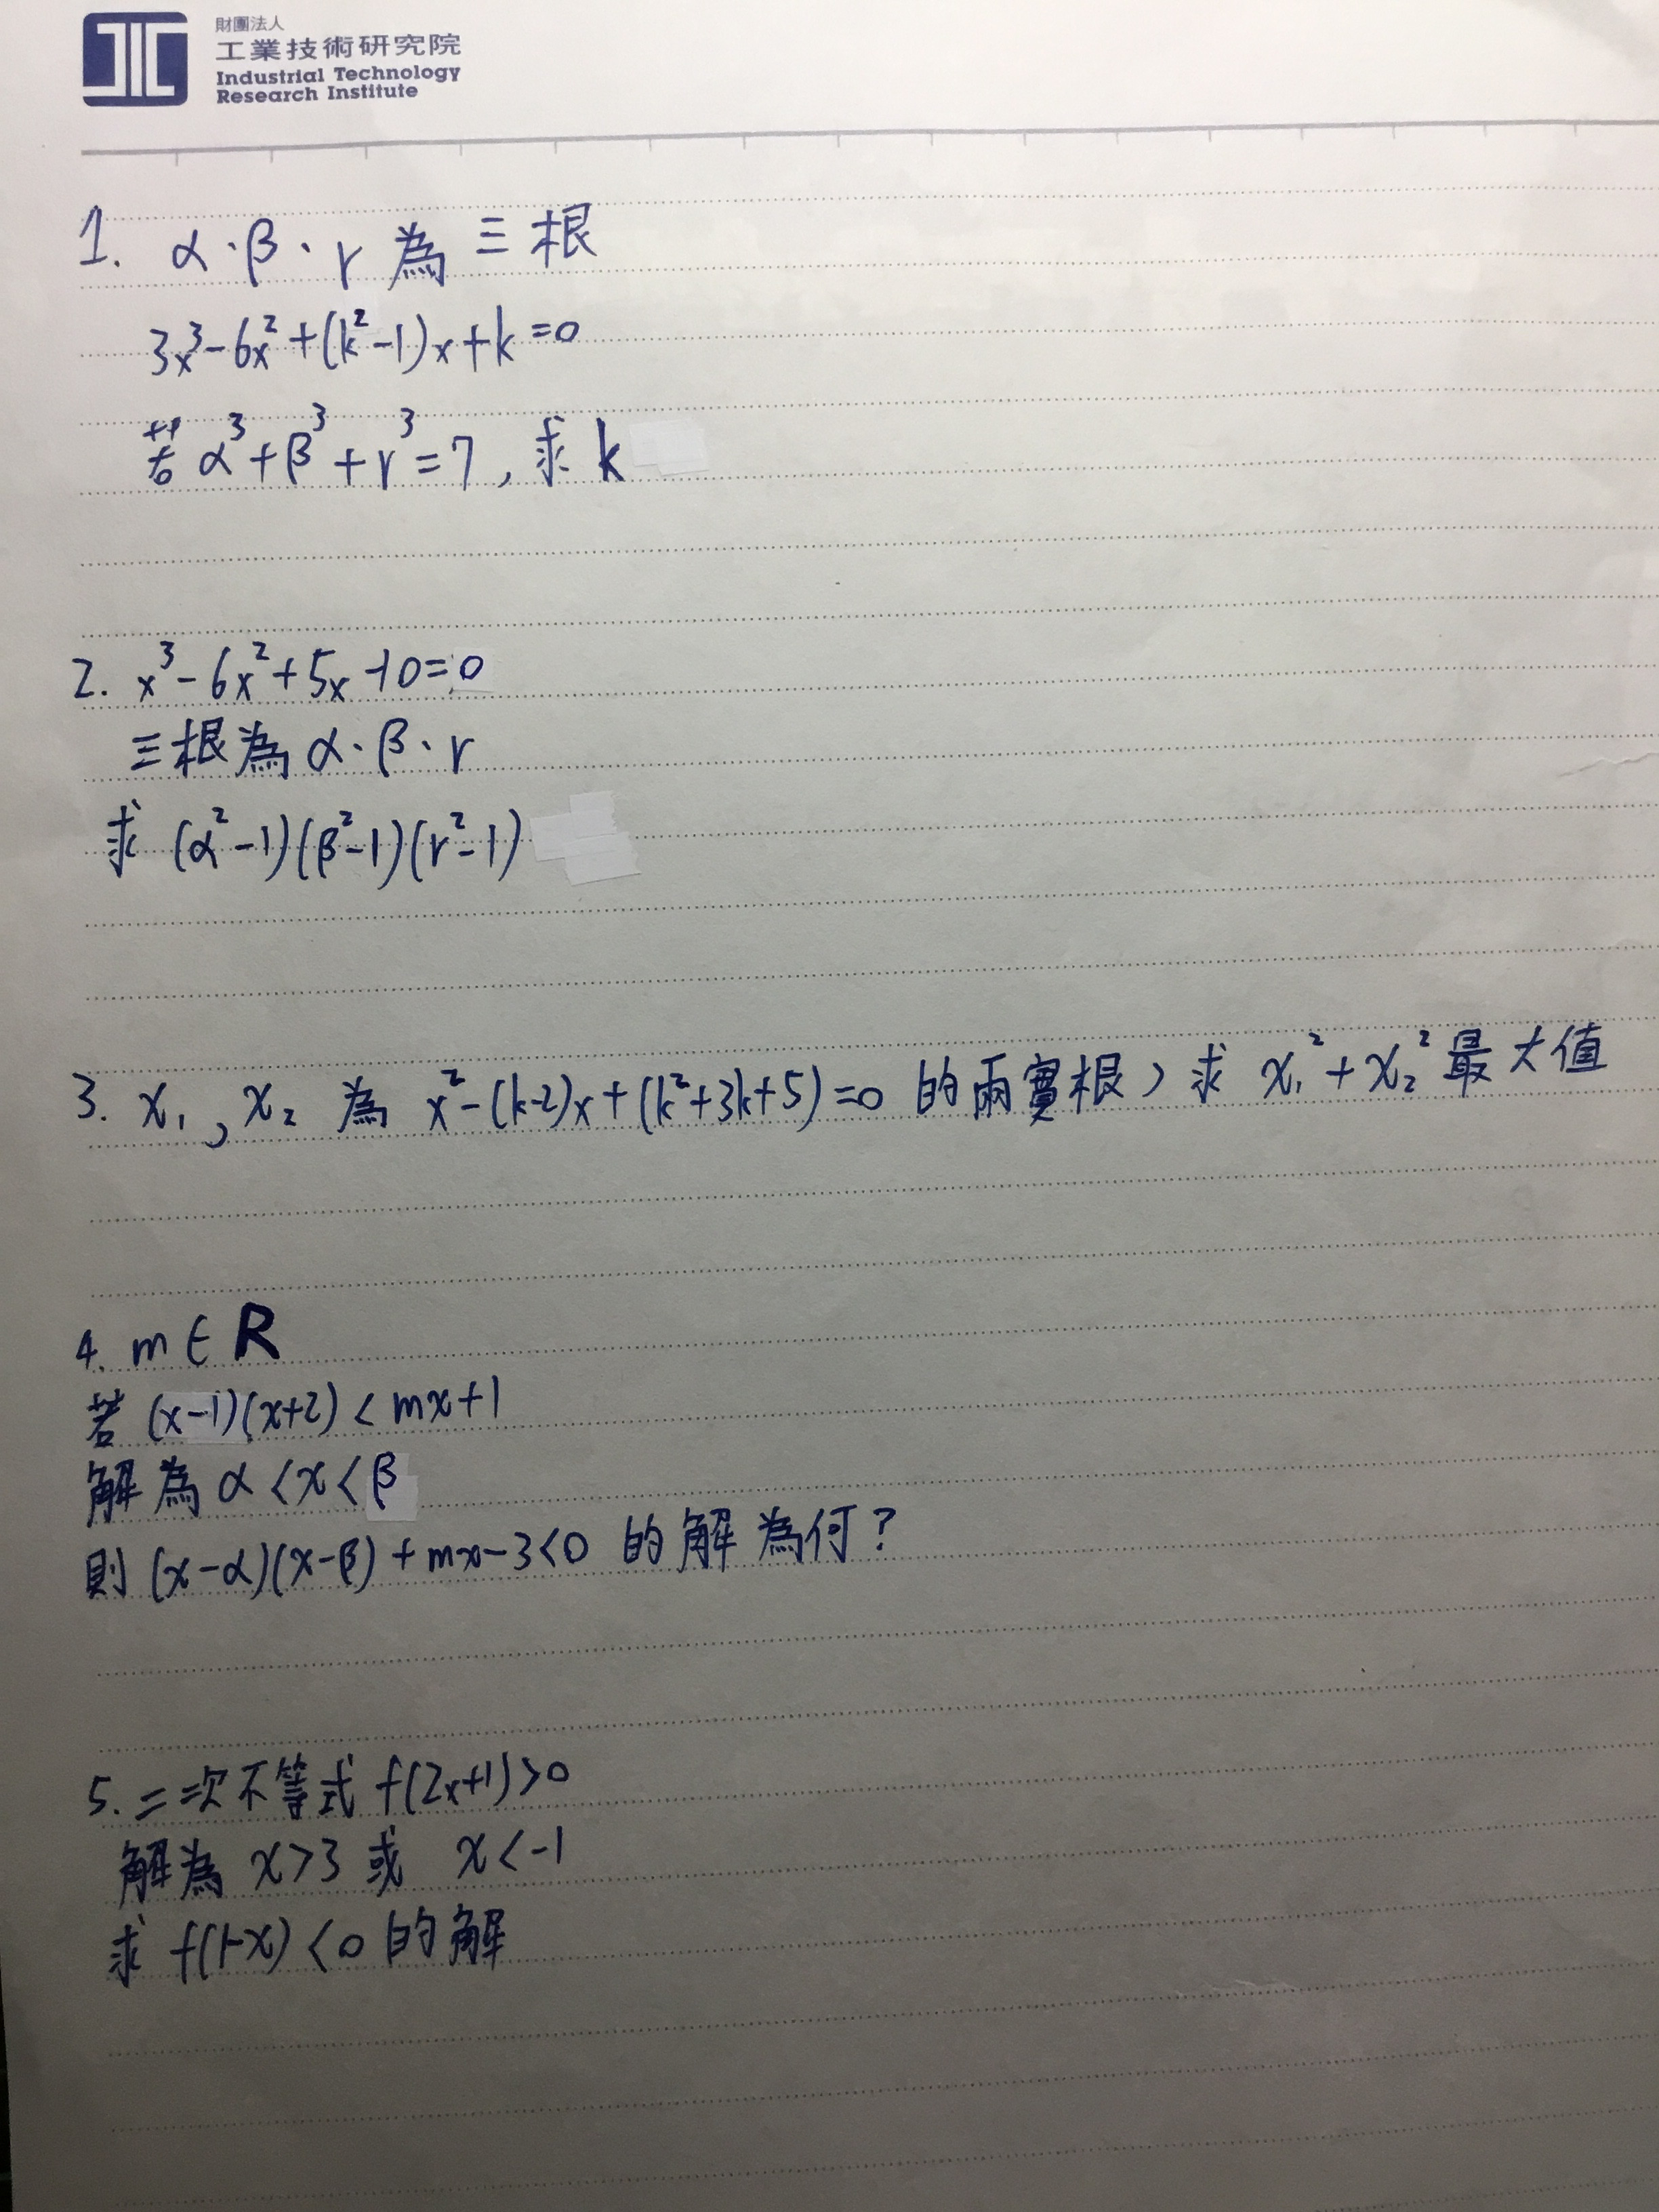 財團法人
工業技術研究院
Industrial Technology
Research Institute
1. α、β、r 為三根
3x³-6x²+(k²-1)x+k=0
若 α³+β³+r³=7, 求 k
2. x³-6x²+5x-10=0
三根為 α、β、r
求 (α²-1)(β²-1)(r²-1)
3. x₁, x₂ 為 x²-(k-2)x+(k²+3k+5)=0 的兩實根, 求 x₁²+x₂² 最大值
4. m∈R
若 (x-1)(x+2) < mx+1
解為 α<x<β
則 (x-α)(x-β)+mx-3<0 的解為何?
5. 二次不等式 f(2x+1)>0
解為 x>3 或 x<-1
求 f(1-x)<0 的解